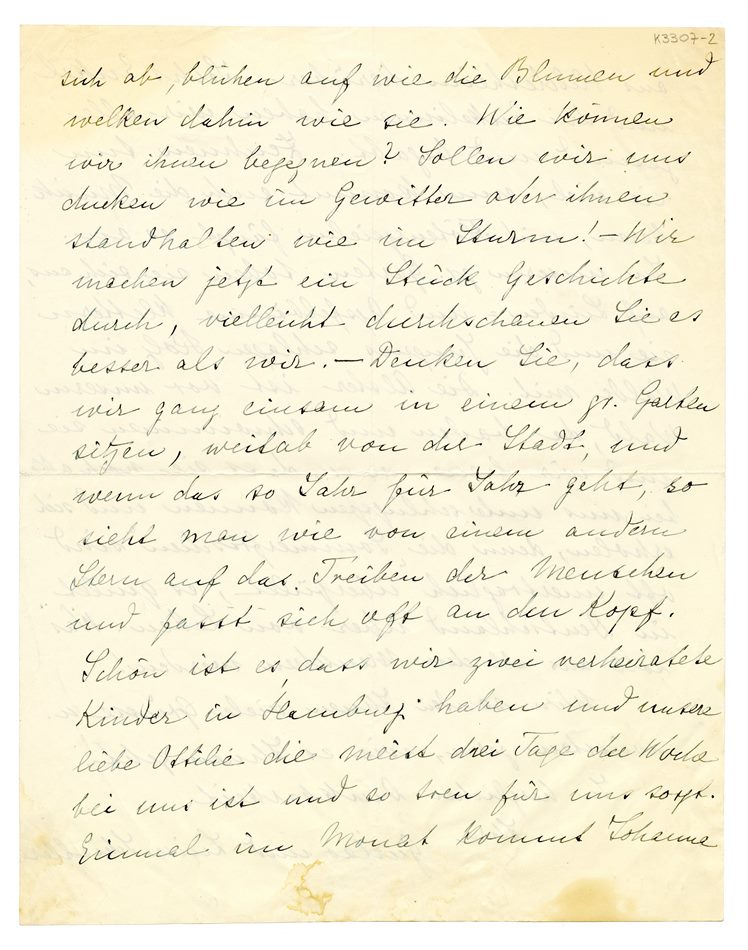 K3307-2
sich ab, blühen auf wie die Blumen und
welken dahin wie sie. Wie können
wir ihnen begegnen? Sollen wir uns
ducken wie im Gewitter oder ihnen
standhalten wie im Sturm! – Wir
machen jetzt ein Stück Geschichte
durch, vielleicht durchschauen Sie es
besser als wir. – Denken Sie, dass
wir ganz einsam in einem gr. Garten
sitzen, weitab von der Stadt, und
wenn das so Jahr für Jahr geht, so
sieht man wie von einem andern
Stern auf das Treiben der Menschen
und fasst sich oft an den Kopf.
Schön ist es, dass wir zwei verheiratete
Kinder in Hamburg haben und unsere
liebe Ottilie die meist drei Tage die Woche
bei uns ist und so treu für uns sorgt.
Einmal im Monat kommt Johanna